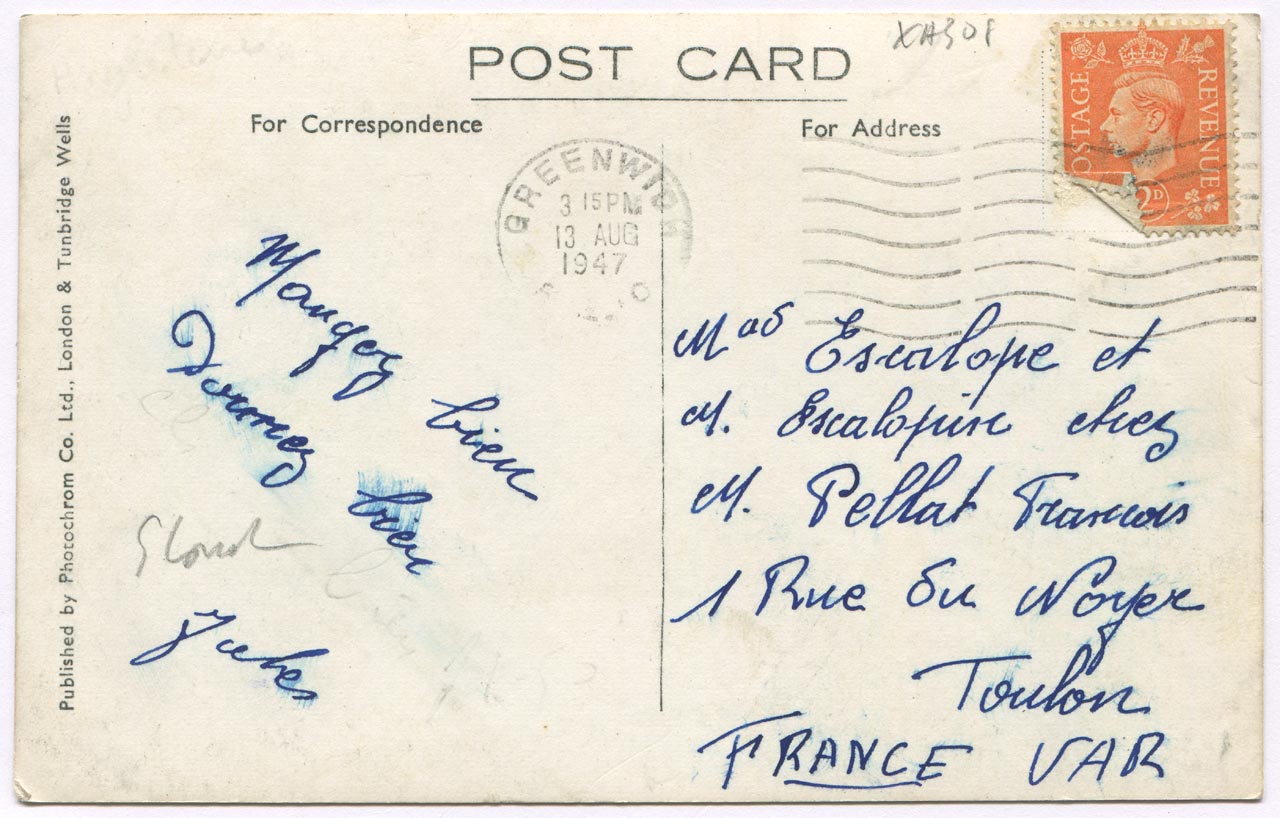 POST CARD
XA308
For Correspondence
For Address
POSTAGE
REVENUE
2D
GREENWICH
3 15 PM
13 AUG
1947
Mangez bien
Dormez bien
Jules
Mad Escalope et
M. Escalopin chez
M. Pellat Francois
1 Rue Du Noyer
Toulon
FRANCE VAR
Published by Photochrom Co. Ltd., London & Tunbridge Wells